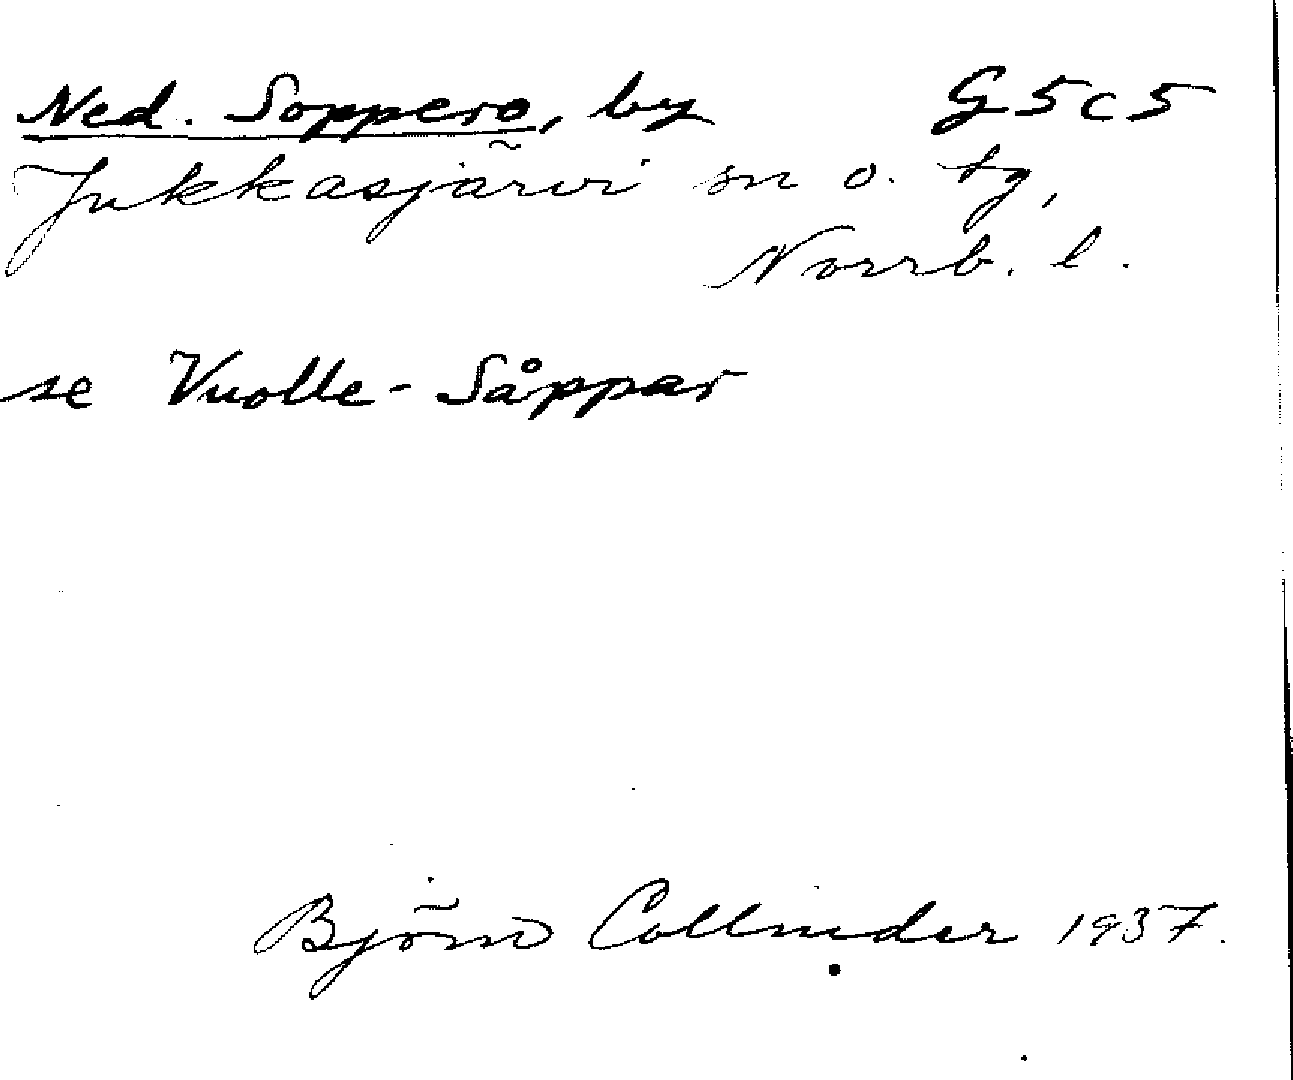 Ned. Soppero, by G5c5
Jukkasjärvi sn o. tg,
Norrb. l.
se Vuolle-Såppar
Björn Collinder 1937.